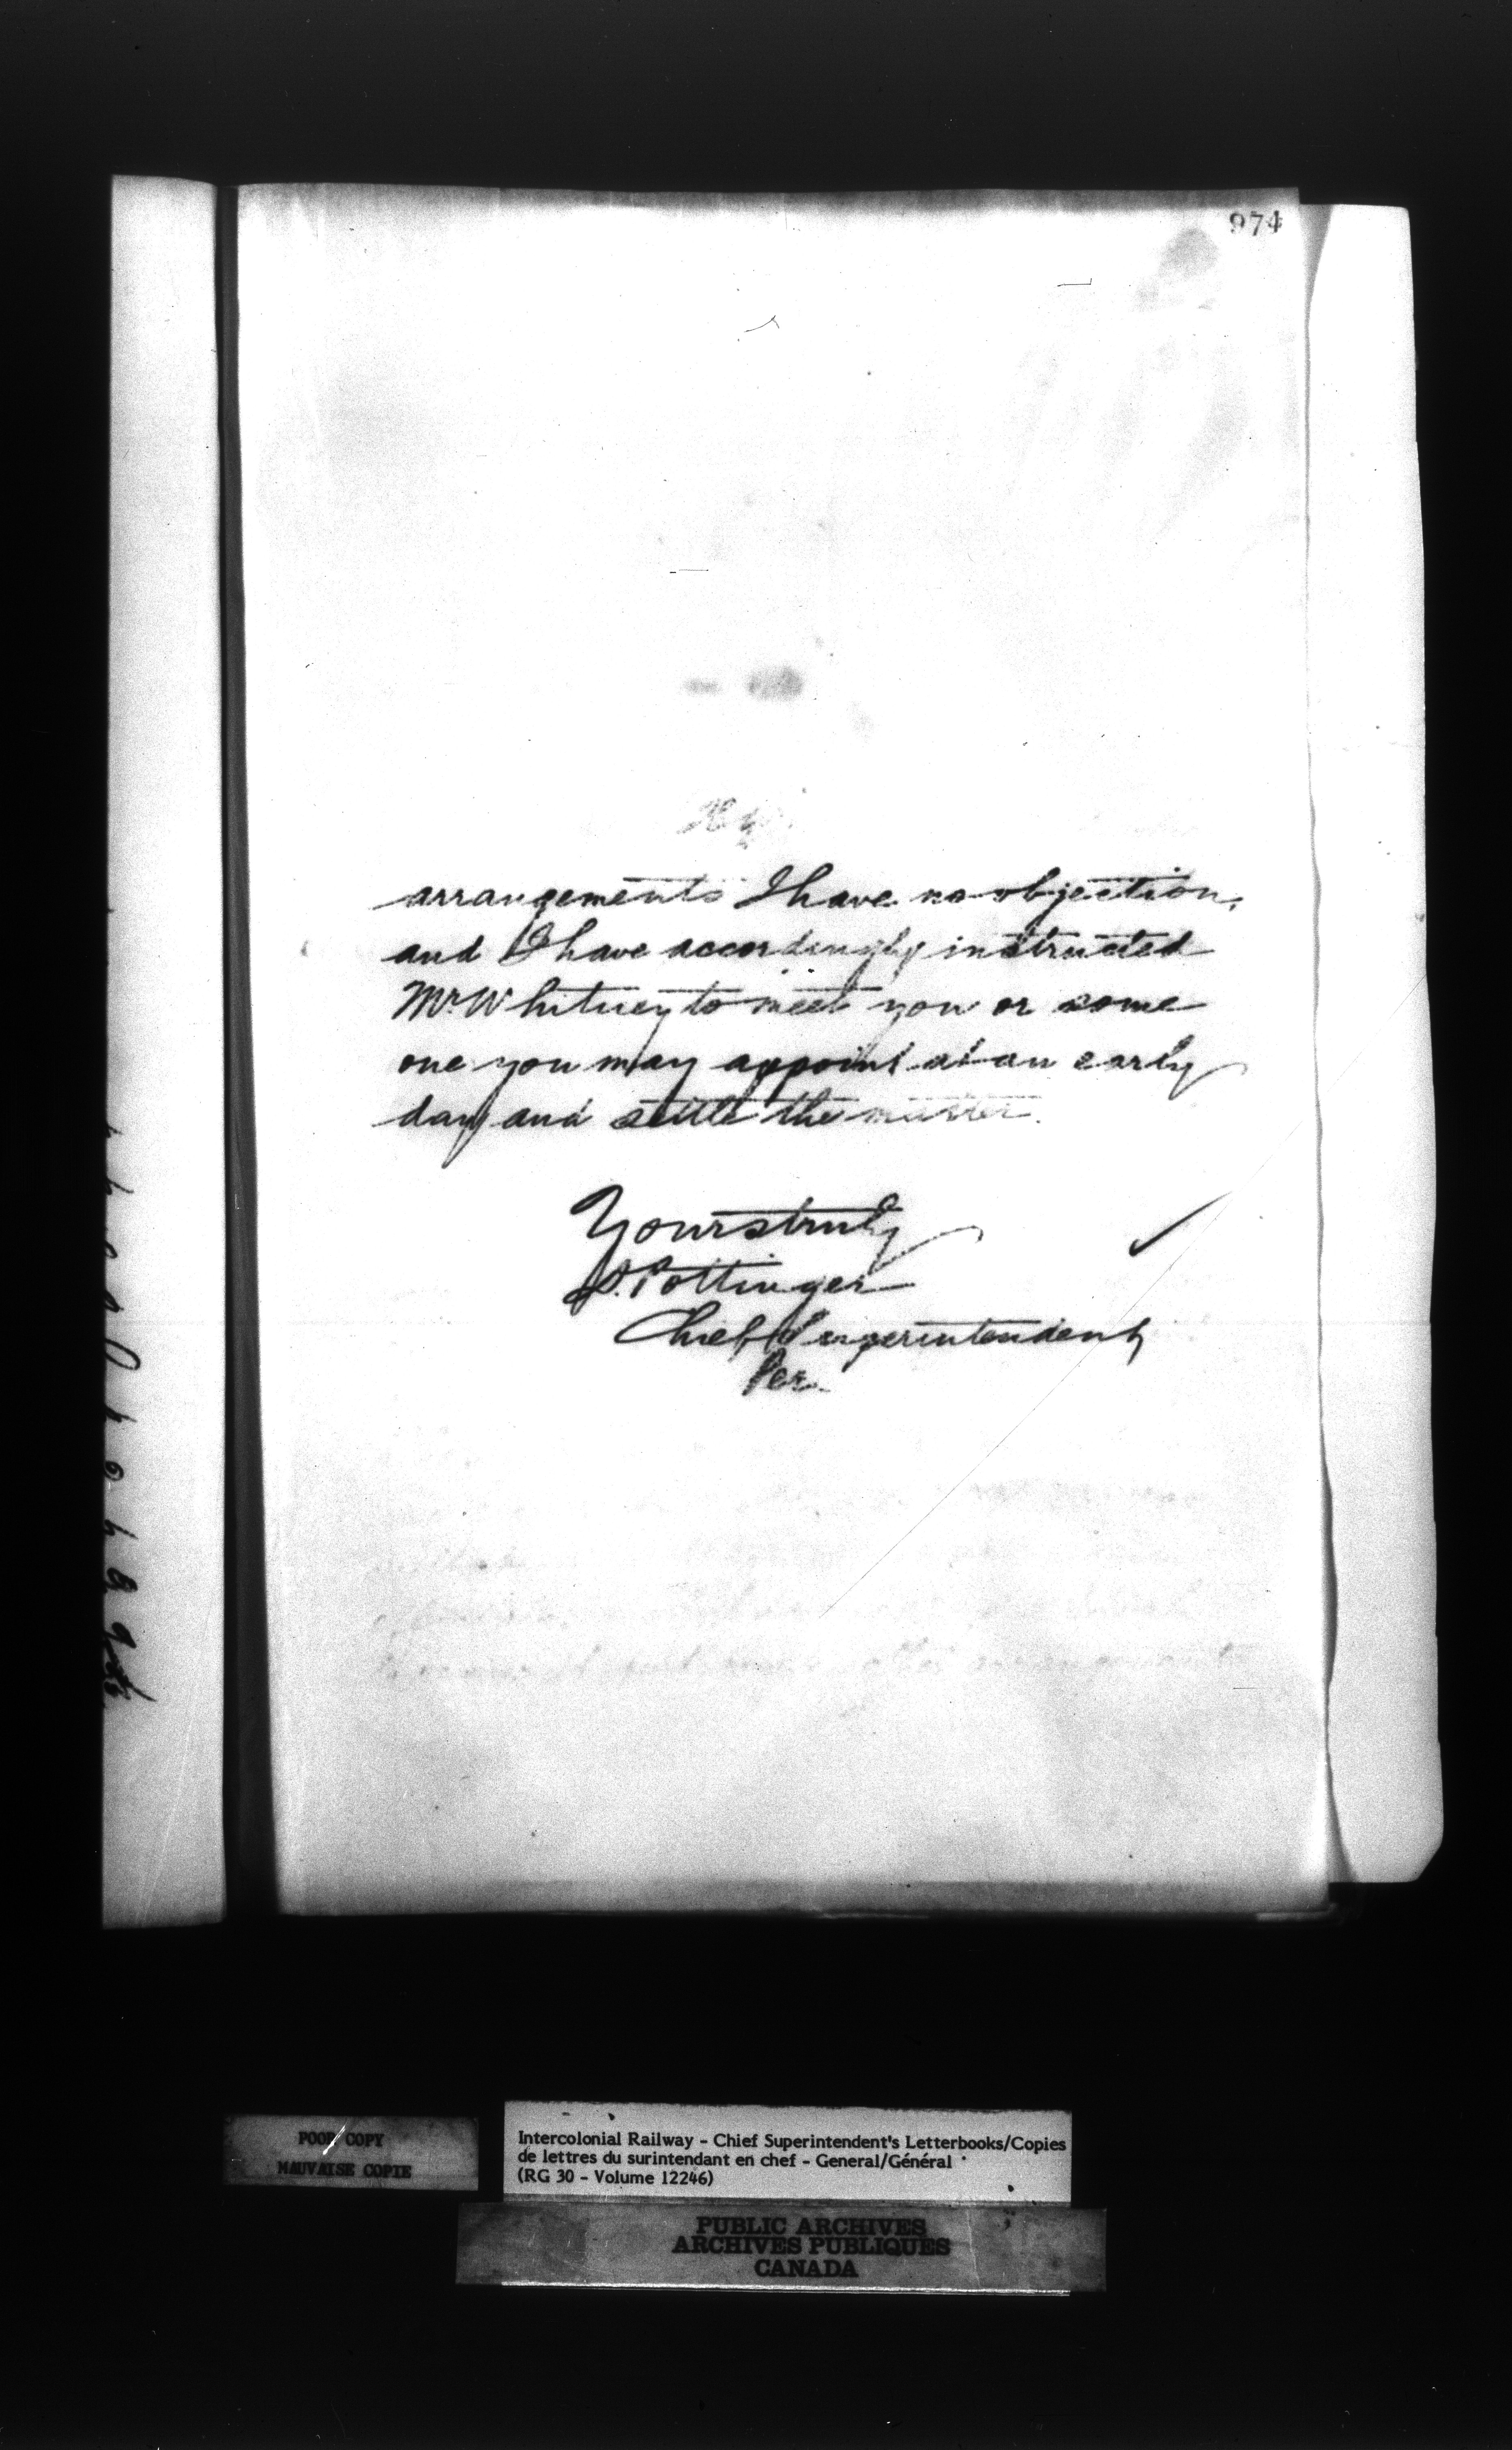 974
arrangements I have no objection,
and I have accordingly instructed
Mr. Whitney to meet you or some
one you may appoint at an early
day and settle the matter.
Yours truly
D. Pottinger
Chief Superintendent
Per
POOR COPY
MAUVAISE COPIE
Intercolonial Railway - Chief Superintendent's Letterbooks/Copies
de lettres du surintendant en chef - General/Général
(RG 30 - Volume 12246)
PUBLIC ARCHIVES
ARCHIVES PUBLIQUES
CANADA